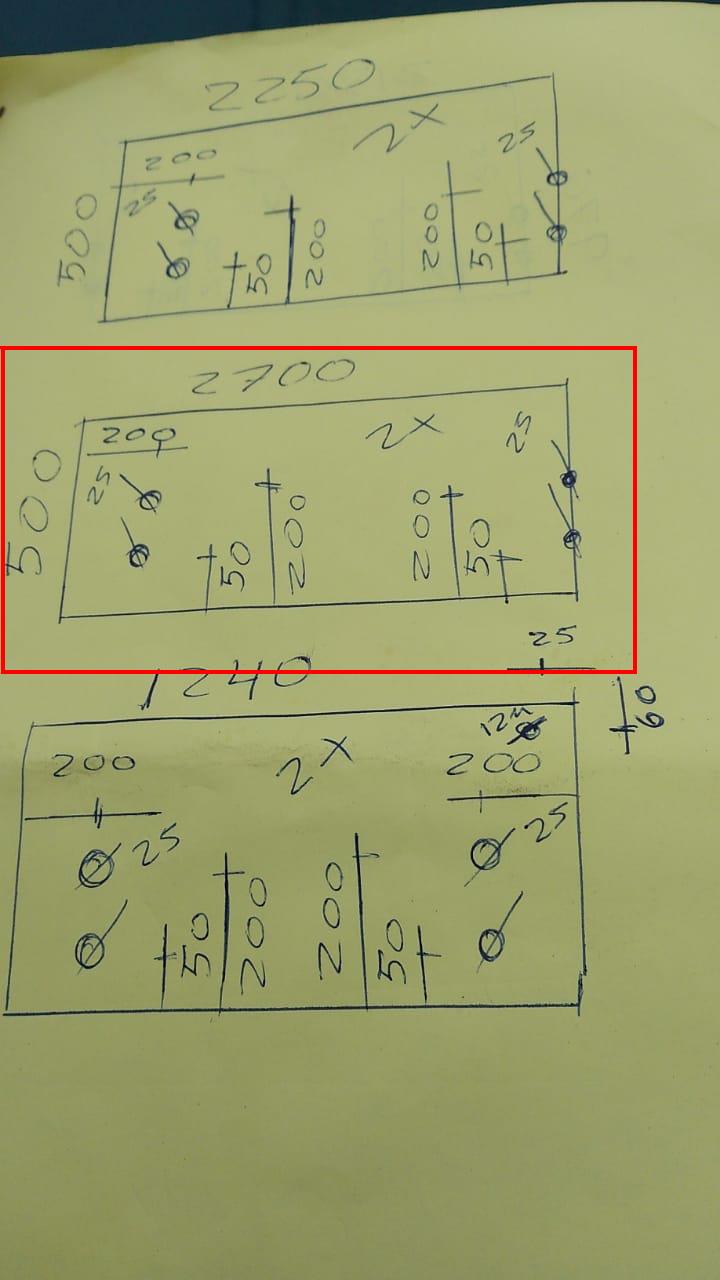 2250
200
2x
25
500
25
50
200
200
50
2700
200
2x
25
500
25
50
200
200
50
25
1240
60
200
2x
12м
200
25
25
50
200
200
50